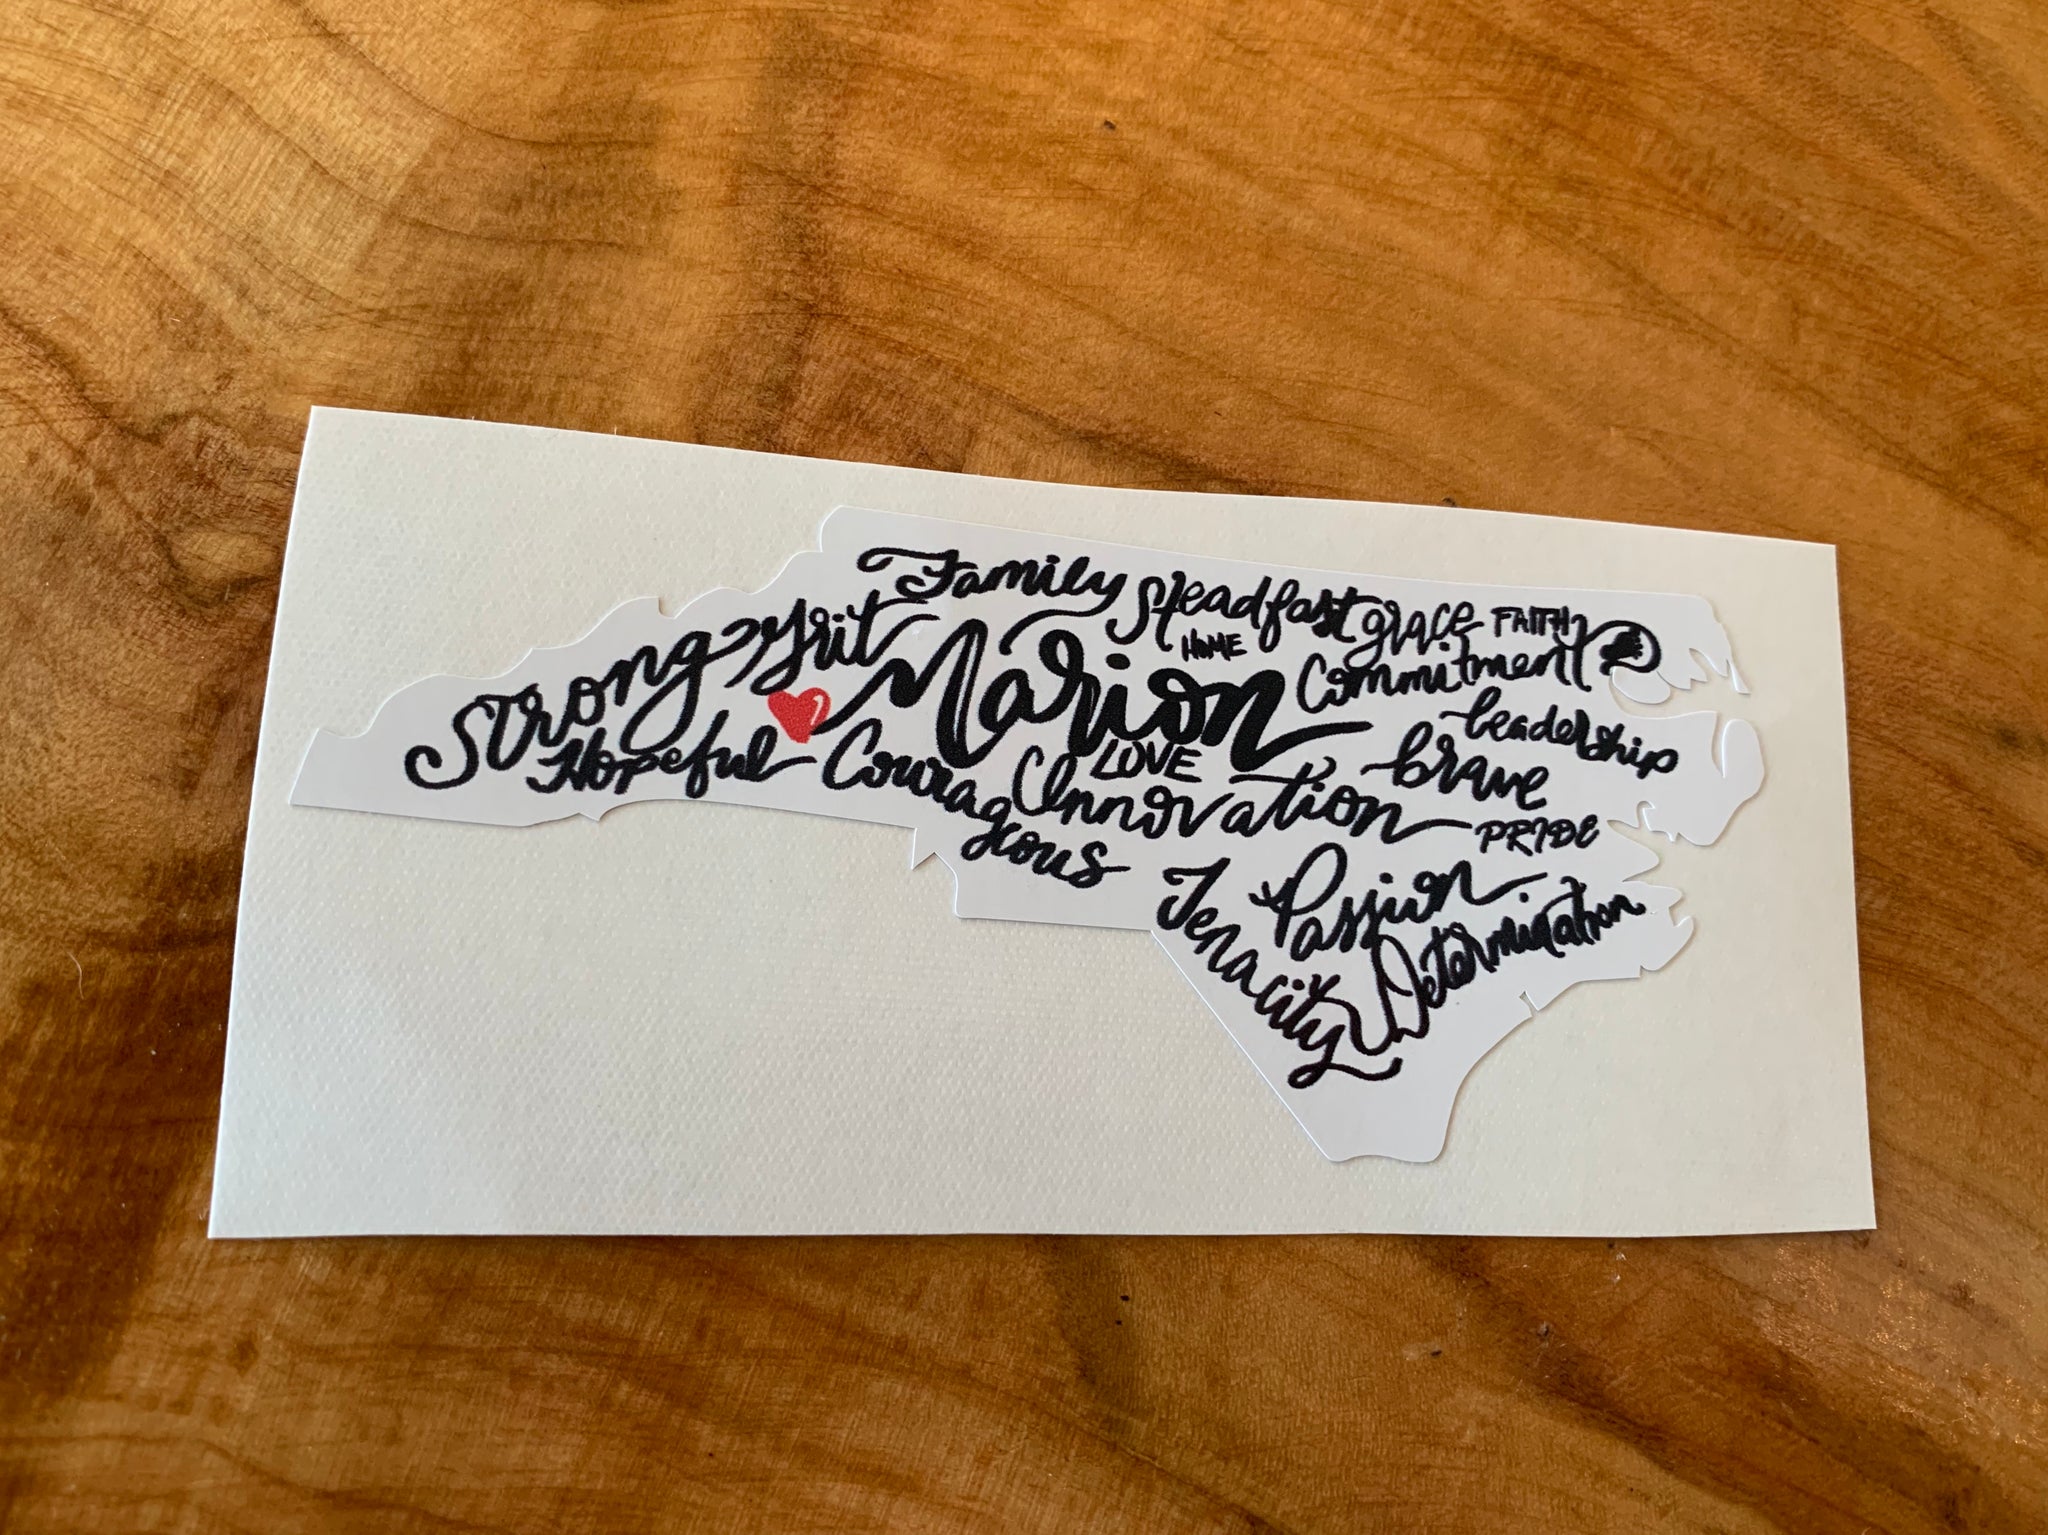 Family
Steadfast
grace
FAITH
Strong
Grit
HOME
Marion
Commitment
Leadership
Hopeful
Courageous
LOVE
Innovation
brave
PRIDE
Tenacity
Passion
Determination